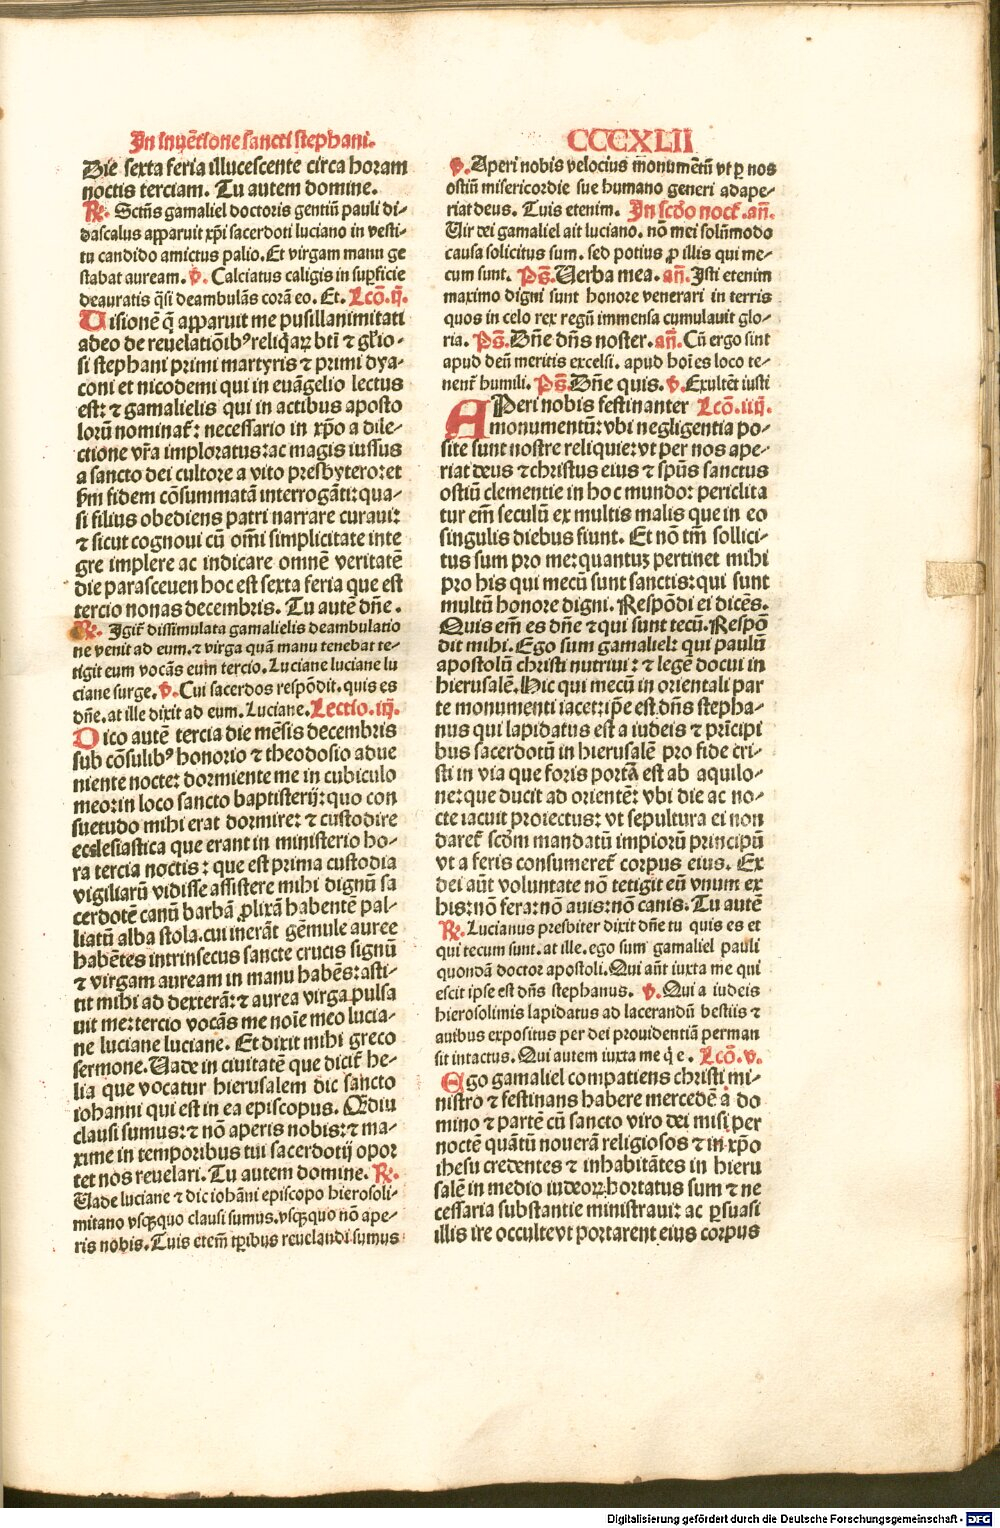 In inuētione sancti stephani.
CCCXLII
Die sexta feria illucescente circa horam
noctis terciam. Tu autem domine.
R̷. Sctūs gamaliel doctoris gentiū pauli di-
dascalus apparuit xp̄i sacerdoti luciano in vesti-
tu candido amictus palio. Et virgam manu ge
stabat auream. v̷. Calciatus caligis in sup̱ficie
deauratis q̄si deambulās corā eo. Et. Lcō. ij.
Uisionē q̄ apparuit me pusillanimitati
adeo de reuelatiōibꝰ reliq̄aꝝ bt̄i ⁊ gl̄io-
si stephani primi martyris ⁊ primi dya-
coni et nicodemi qui in euāgelio lectus
est: ⁊ gamalielis qui in actibus aposto
lorū nominat̄: necessario in xp̄o a dile-
ctione vr̄a imploratus: ac magis iussus
a sancto dei cultore a vito presbytero: et
p̄m fidem cōsummatā interrogāti: qua-
si filius obediens patri narrare curaui:
⁊ sicut cognoui cū om̄i simplicitate inte
gre implere ac indicare omnē veritatē
die parasceuen hoc est sexta feria que est
tercio nonas decembris. Tu autē dn̄e.
R̷. Igit̄ dissimulata gamalielis deambulatio
ne venit ad eum. ⁊ virga quā manu tenebat te-
tigit eum vocās eum tercio. Luciane luciane lu
ciane surge. v̷. Cui sacerdos respōdit. quis es
dn̄e. at ille dixit ad eum. Luciane. Lectio. iij.
Dico autē tercia die mēsis decembris
sub cōsulibꝰ honorio ⁊ theodosio adue
niente nocte: dormiente me in cubiculo
meo: in loco sancto baptisterij: quo con
suetudo mihi erat dormire: ⁊ custodire
ecclesiastica que erant in ministerio ho-
ra tercia noctis: que est prima custodia
vigiliarū vidisse assistere mihi dignū sa
cerdotē canū barbā ꝓlixā habentē pal-
liatū alba stola. cui inerāt gēmule auree
habētes intrinsecus sancte crucis signū
⁊ virgam auream in manu habēs: asti-
tit mihi ad dexterā: ⁊ aurea virga pulsa
uit me: tercio vocās me noīe meo lucia-
ne luciane luciane. Et dixit mihi greco
sermone. Uade in ciuitatē que dicit̄ he-
lia que vocatur hierusalem dic sancto
iohanni qui est in ea episcopus. Qdiu
clausi sumus: ⁊ nō aperis nobis: ⁊ ma-
xime in temporibus tui sacerdotij opor
tet nos reuelari. Tu autem domine. R̷.
Uade luciane ⁊ dic iohāni episcopo hierosoli-
mitano vsq̱quo clausi sumus. vsq̱quo nō ape-
ris nobis. Tuis etem̄ tp̱ibus reuelandi sumus
v̷. Aperi nobis velocius monumētū vt ꝑ nos
ostiū misericordie sue humano generi adape-
riat deus. Tuis etenim. In scd̄o noct̄. an̄.
Uir dei gamaliel ait luciano. nō mei solūmodo
causa solicitus sum. sed potius ꝓ illis qui me-
cum sunt. Ps̄. Uerba mea. an̄. Isti etenim
maximo digni sunt honore venerari in terris
quos in celo rex regū immensa cumulauit glo-
ria. Ps̄. Dn̄e dn̄s noster. an̄. Cū ergo sint
apud deū meritis excelsi. apud hoīes loco te-
nent̄ humili. Ps̄. Dn̄e quis. v̷. Exultēt iusti
APeri nobis festinanter Lcō. iiij.
monumentū: vbi negligentia po-
site sunt nostre reliquie: vt per nos ape-
riat deus ⁊ christus eius ⁊ sp̄us sanctus
ostiū clementie in hoc mundo: periclita
tur em̄ seculū ex multis malis que in eo
singulis diebus fiunt. Et nō tm̄ sollici-
tus sum pro me: quantuȝ pertinet mihi
pro his qui mecū sunt sanctis: qui sunt
multū honore digni. Respōdi ei dicēs.
Quis em̄ es dn̄e ⁊ qui sunt tecū. Respō
dit mihi. Ego sum gamaliel: qui paulū
apostolū christi nutriui: ⁊ legē docui in
hierusalē. Hic qui mecū in orientali par
te monumenti iacet: ip̄e est dn̄s stepha-
nus qui lapidatus est a iudeis ⁊ prīcipi
bus sacerdotū in hierusalē pro fide cri-
sti in via que foris portā est ab aquilo-
ne: que ducit ad orientē: vbi die ac no-
cte iacuit proiectus: vt sepultura ei non
daret̄ scd̄m mandatū impiorū principū
vt a feris consumeret̄ corpus eius. Ex
dei aūt voluntate nō tetigit eū vnum ex
his: nō fera: nō auis: nō canis. Tu autē
R̷. Lucianus presbiter dixit dn̄e tu quis es et
qui tecum sunt. at ille. ego sum gamaliel pauli
quondā doctor apostoli. Qui aūt iuxta me qui
escit ipse est dn̄s stephanus. v̷. Qui a iudeis
hierosolimis lapidatus ad lacerandū bestiis ⁊
auibus expositus per dei prouidentiā perman
sit intactus. Qui autem iuxta me q̄ e. Lcō. v.
Ego gamaliel compatiens christi mi-
nistro ⁊ festinans habere mercedē a do
mino ⁊ partē cū sancto viro dei misi per
noctē quātū nouerā religiosos ⁊ in xp̄o
ihesu credentes ⁊ inhabitātes in hieru
salē in medio iudeoꝝ: hortatus sum ⁊ ne
cessaria substantie ministraui: ac ꝑsuasi
illis ire occulte vt portarent eius corpus
Digitalisierung gefördert durch die Deutsche Forschungsgemeinschaft - DFG